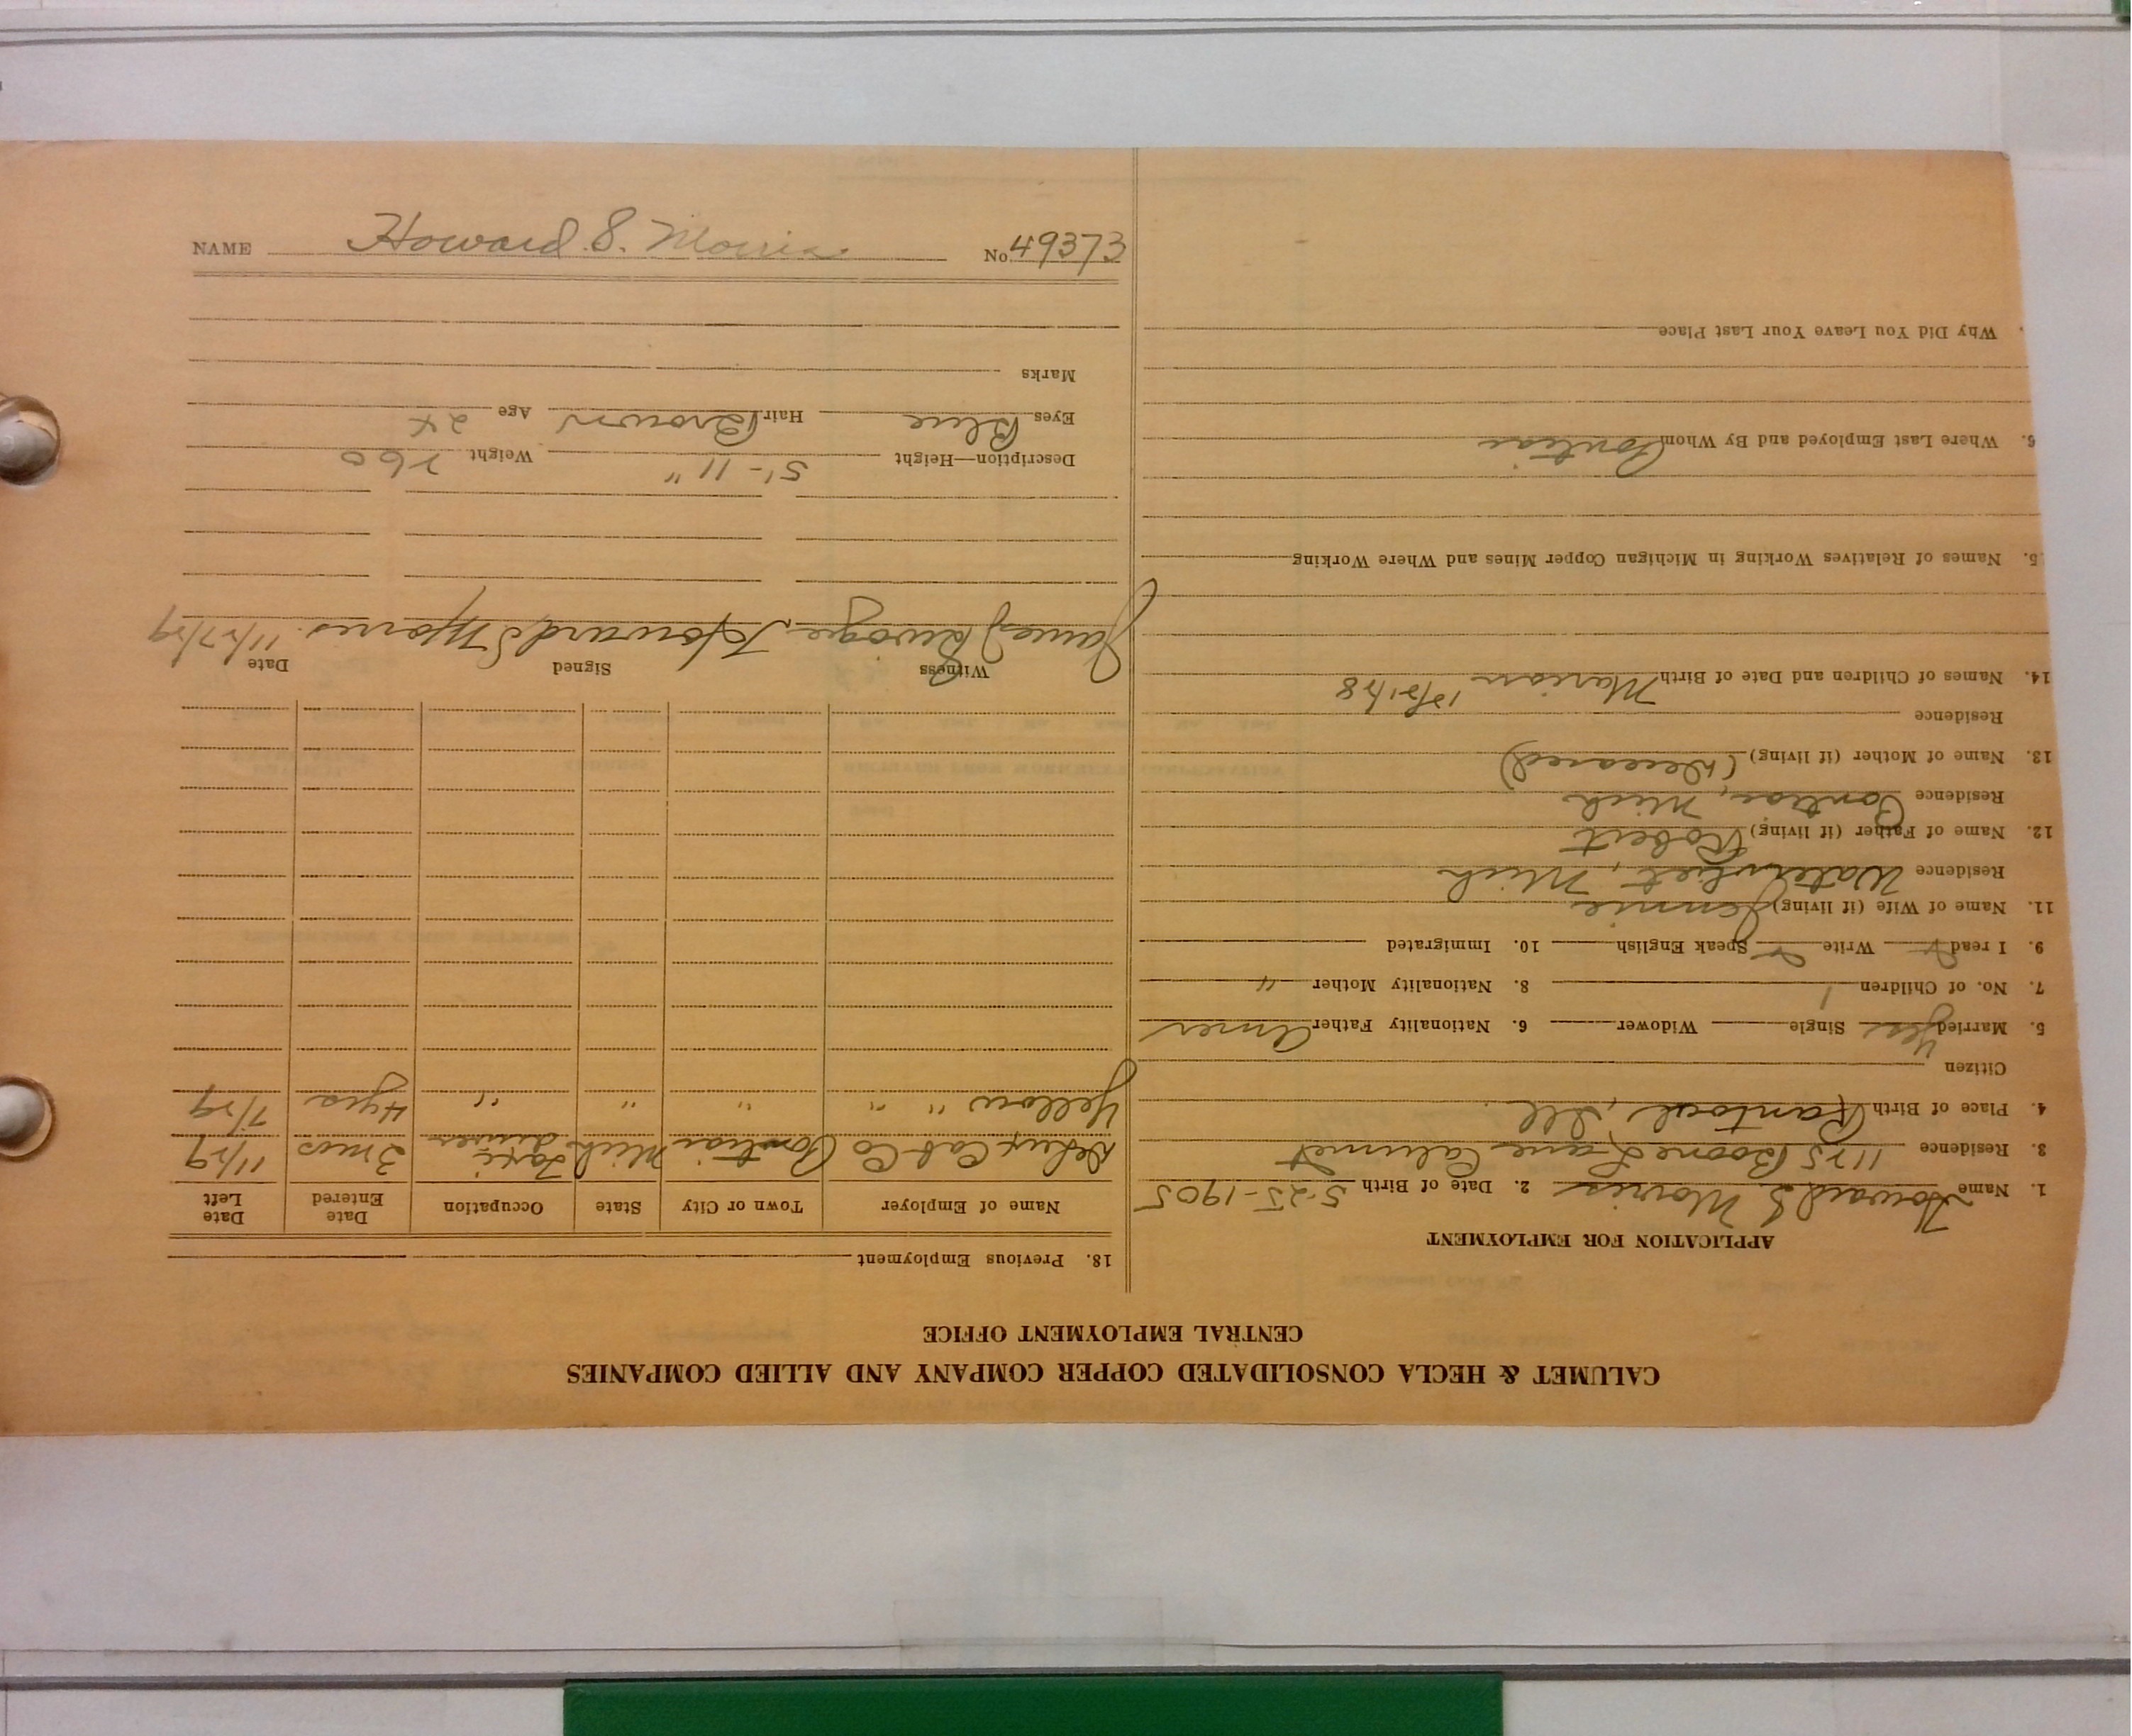 CALUMET & HECLA CONSOLIDATED COPPER COMPANY AND ALLIED COMPANIES
CENTRAL EMPLOYMENT OFFICE
APPLICATION FOR EMPLOYMENT
1. Name Howard S. Morris 2. Date of Birth 5-25-1905
3. Residence 1175 Boone Lane Calumet
4. Place of Birth Rantoul, Ill.
Citizen
5. Married Yes Single Widower 6. Nationality Father Amer
7. No. of Children 1 8. Nationality Mother "
9. I read Write Speak English 10. Immigrated
11. Name of Wife (if living) Jennie
Residence Watervliet, Mich
12. Name of Father (if living) Robert
Residence Pontiac, Mich
13. Name of Mother (if living) (Deceased)
Residence
14. Names of Children and Date of Birth Marion
5. Names of Relatives Working in Michigan Copper Mines and Where Working
6. Where Last Employed and By Whom Pontiac
. Why Did You Leave Your Last Place
18. Previous Employment
Name of Employer Town or City State Occupation Date Entered Date Left
Cab Co Pontiac Mich Taxi driver 3 mos 11/29
Yellow " " " " " 4 yrs 7/29
Witness Signed Date
James Howard S Morris 11/27/29
Description—Height 5'-11" Weight 160
Eyes Blue Hair Brown Age 24
Marks
NAME Howard S. Morris No. 49373